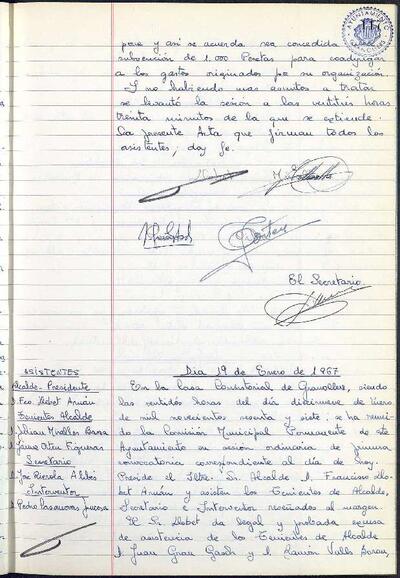 AYUNTAMIENTO
pone y así se acuerda sea concedida
subvención de 1.000 Pesetas para coadyugar
a los gastos originados por su organización
Y no habiendo mas asuntos a tratar
se levantó la sesión a las veintitrés horas
treinta minutos de la que se extiende
la presente Acta que firman todos los
asistentes, doy fe.
El Secretario
ASISTENTES
Alcalde-Presidente
D. Fco. Llobet Arnán
Tenientes Alcalde
D. Julian
D. Jaime Figueras
Secretario
D. Jose
Interventor
D. Pedro
Dia 19 de Enero de 1967
En la Casa Consistorial de Granollers, siendo
las veintidós horas del día diecinueve de Enero
de mil novecientos sesenta y siete, se ha reuni
do la Comisión Municipal Permanente de este
Ayuntamiento en sesión ordinaria de primera
convocatoria correspondiente al día de hoy.
Preside el Iltre. Sr. Alcalde D. Francisco Llo
bet Arnán y asisten los Tenientes de Alcalde,
Secretario e Interventor reseñados al margen.
El Sr. Llobet da legal y probada excusa
de asistencia de los Tenientes de Alcalde
D. Juan Grau y D. Ramón Valls